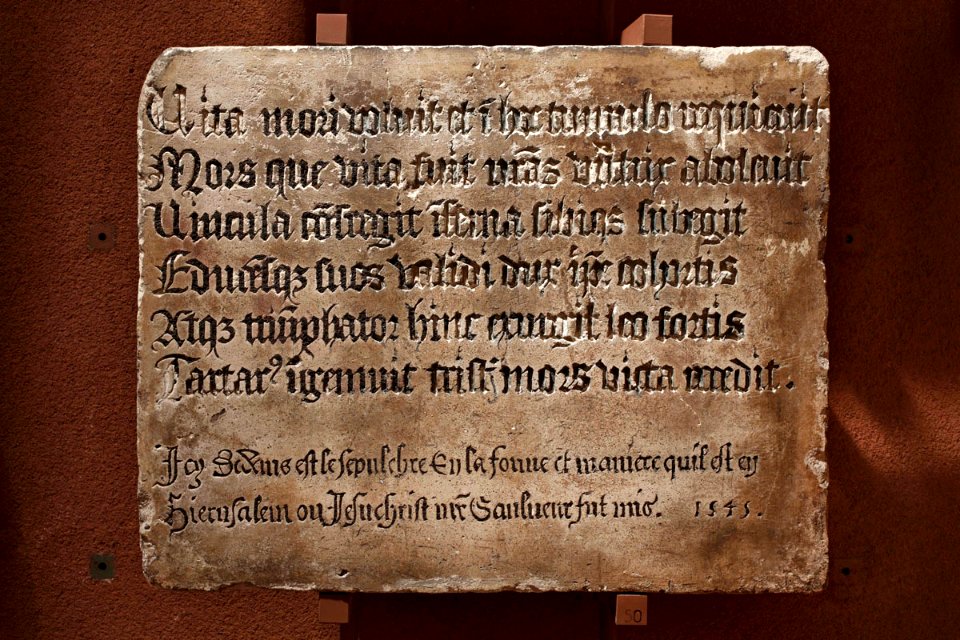 Vita mori voluit et ī hoc tumulo requieuit
Mors que vita fuit nr̄ās vr̄tutx aboleuit
Vincula cōfregit īferna sibiqs subegit
Educēsqȝ suos validi dux ip̄e cohortis
Atqȝ triūphator hinc exurgit leo fortis
Tartarꝰ īgemuit tristis mors victa recedit.
Icy Dedens est le sepulchre En la forme et maniere quil est en
Hierusalem ou Jesuchrist nr̄e Saulueur fut mis. 1545.
50